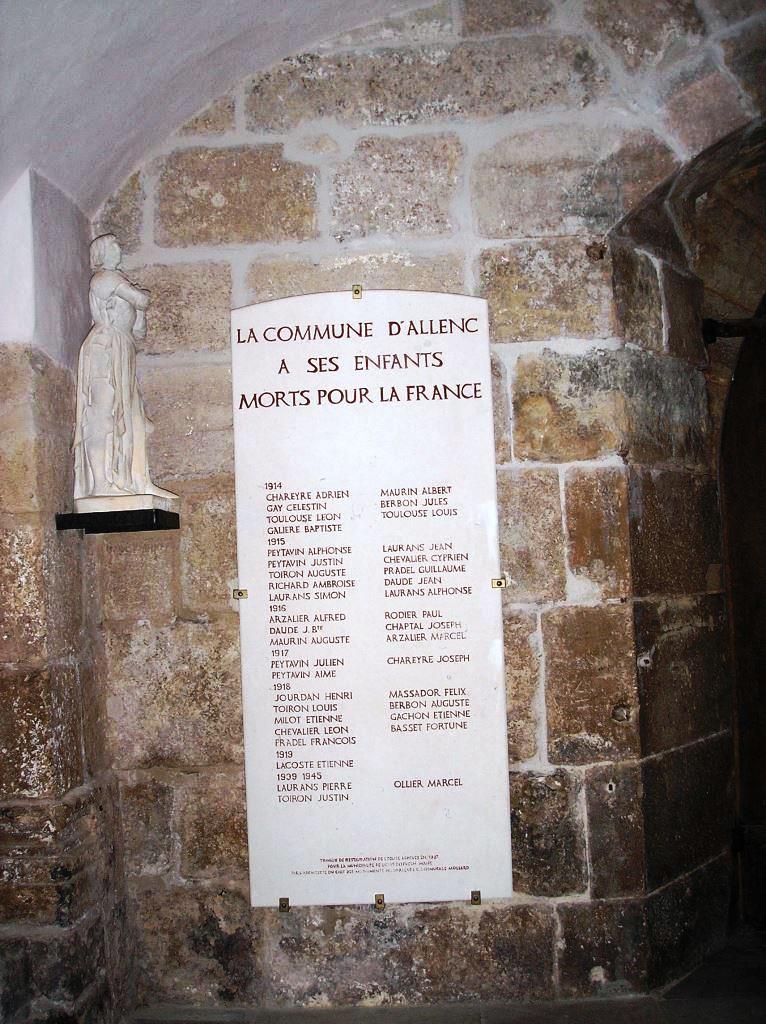 LA COMMUNE D'ALLENC
A SES ENFANTS
MORTS POUR LA FRANCE
1914
CHAREYRE ADRIEN MAURIN ALBERT
GAY CELESTIN BERBON JULES
TOULOUSE LEON TOULOUSE LOUIS
GALIERE BAPTISTE
1915
PEYTAVIN ALPHONSE LAURANS JEAN
PEYTAVIN JUSTIN CHEVALIER CYPRIEN
TOIRON AUGUSTE PRADEL GUILLAUME
RICHARD AMBROISE DAUDE JEAN
LAURANS SIMON LAURANS ALPHONSE
1916
ARZALIER ALFRED RODIER PAUL
DAUDE J.Bte CHAPTAL JOSEPH
MAURIN AUGUSTE ARZALIER MARCEL
1917
PEYTAVIN JULIEN CHAREYRE JOSEPH
PEYTAVIN AIME
1918
JOURDAN HENRI MASSADOR FELIX
TOIRON LOUIS BERBON AUGUSTE
MILOT ETIENNE GACHON ETIENNE
CHEVALIER LEON BASSET FORTUNE
PRADEL FRANCOIS
1919
LACOSTE ETIENNE
1939 1945
LAURANS PIERRE OLLIER MARCEL
TOIRON JUSTIN
DE RESTAURATION DE L'EGLISE